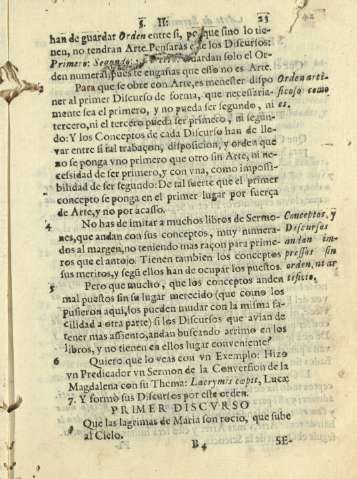 §. II. 23
han de guardar Orden entre si, porque sino lo tie-
nen, no tendran Arte. Pensaràs de los Discursos:
Primero: Segundo: guardan solo el Or-
den numeras: pues te engañas que esso no es Arte.
Para que se obre con Arte, es menester dispo
ner al primer Discurso de forma, que necessaria-
mente sea el primero, y no pueda ser segundo, ni
tercero, ni el tercero pueda ser primero, ni segun-
do: Y los Conceptos de cada Discurso han de lle-
var entre si tal trabaçon, disposicion, y orden que
no se ponga vno primero que otro sin Arte, ni ne-
cessidad de ser primero, y con vna, como impossi-
bilidad de ser segundo: De tal suerte que el primer
concepto se ponga en el primer lugar por fuerça
de Arte, y no por acasso.
Orden arti-
ficoso como
es.
4 No has de imitar a muchos libros de Sermo-
nes, que andan con sus conceptos, muy numera-
dos al margen, no teniendo mas raçon para prime-
ros que el antojo. Tienen tambien los conceptos
sus meritos, y segũ ellos han de ocupar los puestos.
Conceptos, y
Discursos
andan im-
pressos sin
orden, ni ar
tificio.
5 Pero que mucho, que los conceptos anden
mal puestos sin su lugar merecido (que como los
pusieron aqui, los pueden mudar con la misma fa-
cilidad a otra parte) si los Discursos que avian de
tener mas assiento, andan buscando arrimo en los
libros, y no tienen en ellos lugar conveniente?
6 Quiero que lo veas con vn Exemplo: Hizo
vn Predicador vn Sermon de la Conversion de la
Magdalena con su Thema: Lacrymis cæpit, Lucæ
7. Y formò sus Discursos por este orden.
PRIMER DISCVRSO
Que las lagrimas de Maria son rocio, que sube
al Cielo.
B4 SE-